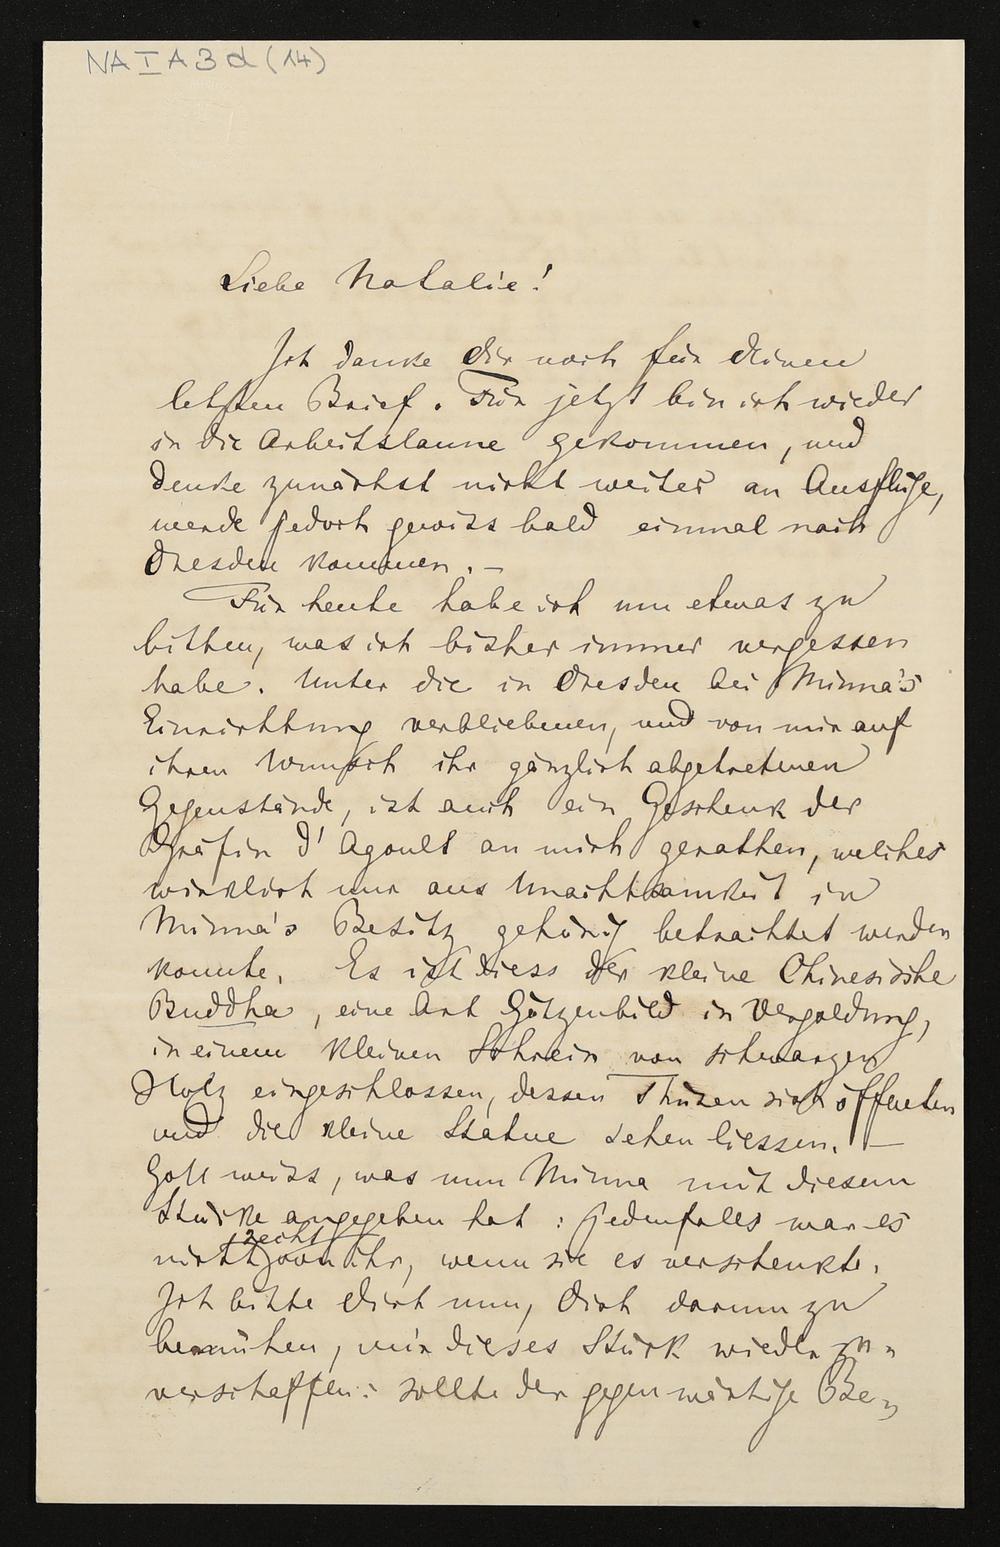 NA I A 3 d (14)
Liebe Natalie!
Ich danke Dir noch für Deinen
letzten Brief. Für jetzt bin ich wieder
in die Arbeitslaune gekommen, und
denke zunächst nicht weiter an Ausflüge,
werde jedoch gewiss bald einmal nach
Dresden kommen. —
Für heute habe ich um etwas zu
bitten, was ich bisher immer vergessen
habe. Unter die in Dresden bei Minna's
Einrichtung verbliebenen, und von mir auf
ihren Wunsch ihr gänzlich abgetretenen
Gegenstände, ist auch ein Geschenk der
Gräfin d'Agoult an mich gerathen, welches
wirklich nur aus Unachtsamkeit in
Minna's Besitz gehörig betrachtet werden
konnte. Es ist diess der kleine Chinesische
Buddha, eine Art Götzenbild in Vergoldung,
in einem kleinen Schrein von schwarzen
Holz eingeschlossen, dessen Thüren sich öffneten
und die kleine Statue sehen liessen. —
Gott weiss, was nun Minna mit diesem
Stücke angegeben hat: jedenfalls war es
nicht recht von ihr, wenn sie es verschenkte.
Ich bitte Dich nun, Dich darum zu
bemühen, mir dieses Stück wieder zu
verschaffen: sollte der gegenwärtige Be-